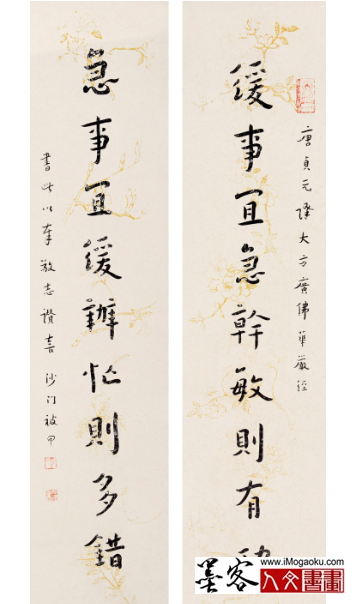 唐貞元譯大方廣佛華嚴經
緩事宜急幹敏則有
急事宜緩辦忙則多錯
書此以奉敬志讚喜 沙門被甲
墨客
www.iMogaoku.com
人文書畫